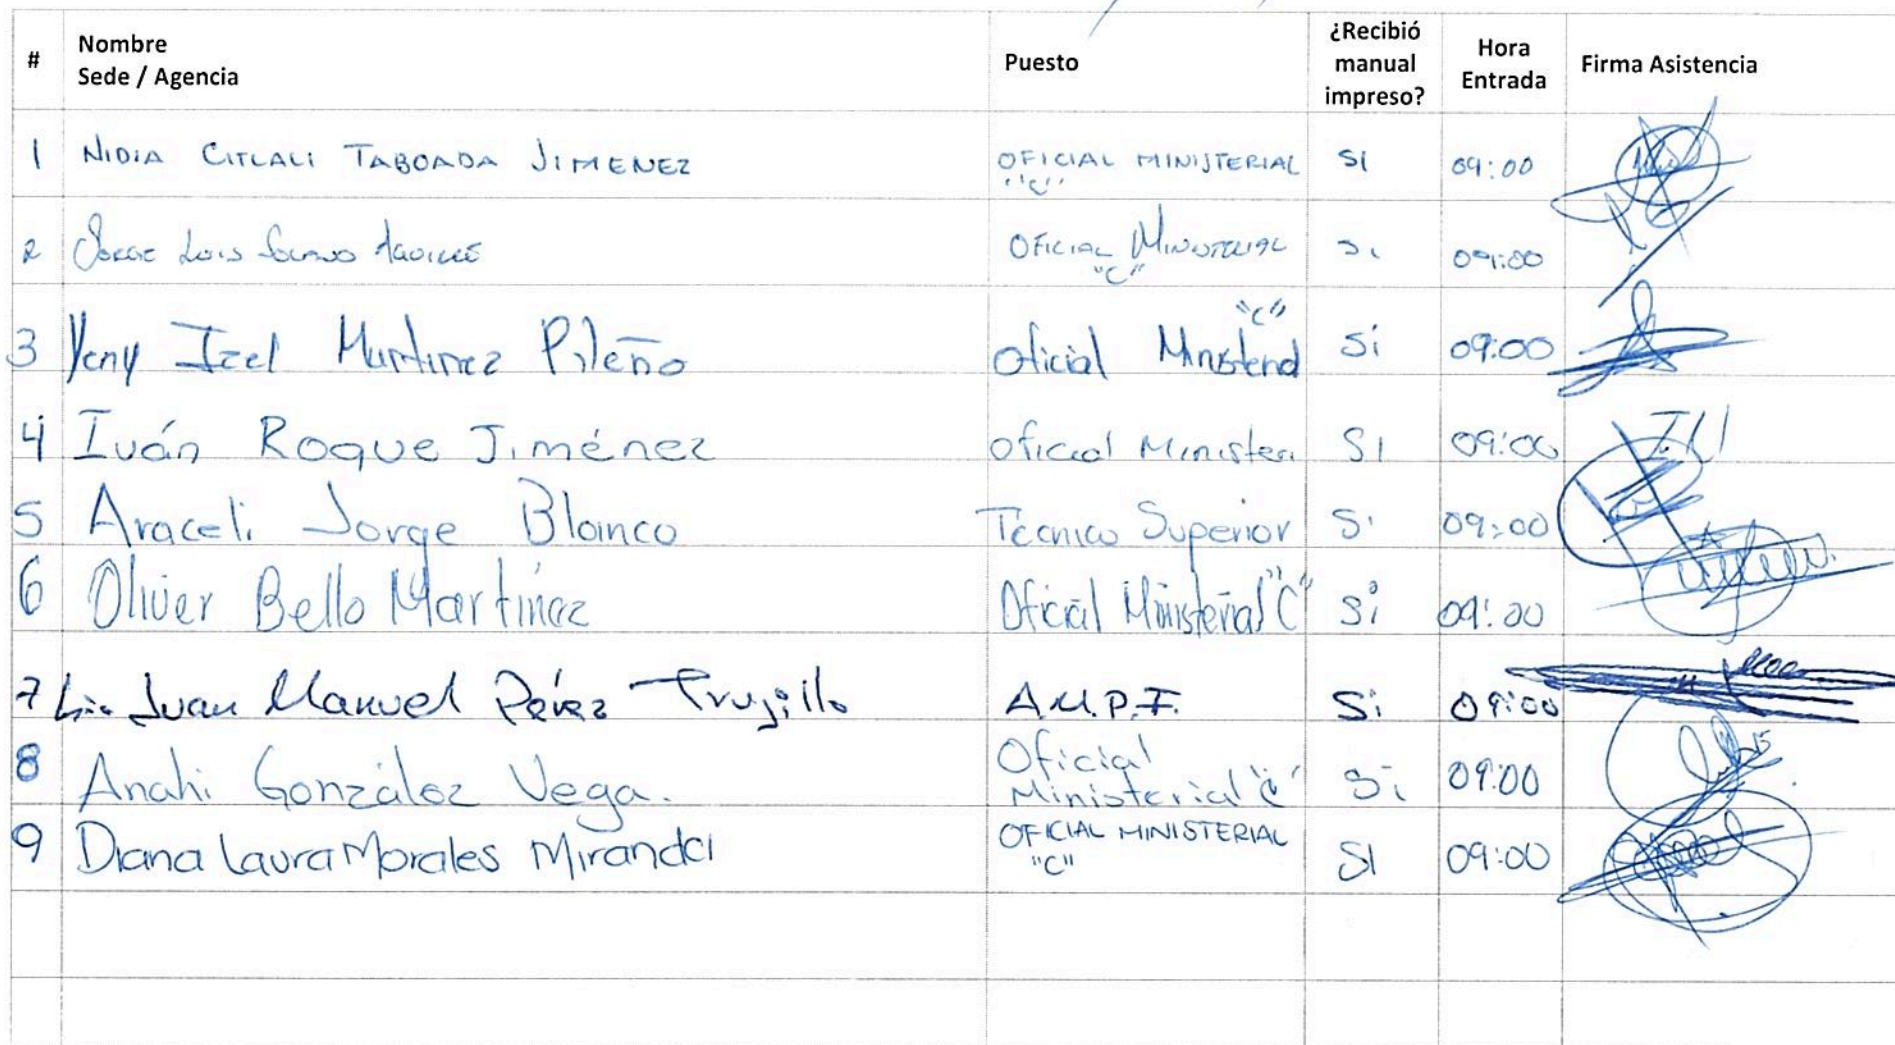 # Nombre Sede / Agencia Puesto ¿Recibió manual impreso? Hora Entrada Firma Asistencia
1 NIDIA CITLALI TABOADA JIMENEZ OFICIAL MINISTERIAL "C" SI 09:00
2 JORGE LUIS AGUIRRE OFICIAL MINISTERIAL "C" Si 09:00
3 Yeny Izel Martinez Pileño Oficial Ministerial "C" Si 09:00
4 Iván Roque Jiménez Oficial Minister SI 09:00
5 Araceli Jorge Blanco Tecnico Superior Si 09:00
6 Oliver Bello Martinez Oficial Ministerial "C" Si 09:00
7 Lic. Juan Manuel Pérez Trujillo A.M.P.F. Si 09:00
8 Anahi González Vega. Oficial Ministerial "C" Si 09:00
9 Diana Laura Morales Miranda OFICIAL MINISTERIAL "C" SI 09:00